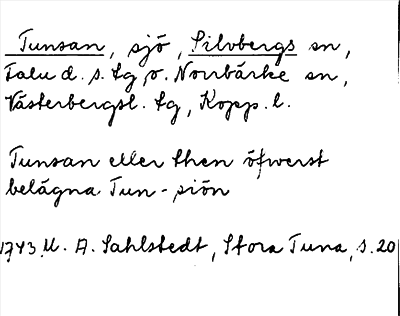 Tunsan, sjö, Silvbergs sn,
Falu d. s. tg o. Norrbärke sn,
Västerbergsl. tg, Kopp. l.
Tunsan eller then öfwerst
belägna Tun-siön
1743. M. A. Sahlstedt, Stora Tuna, s. 20